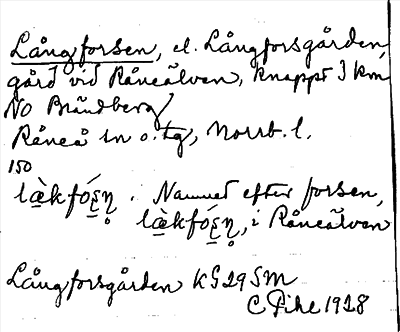 Långforsen, el. Långforsgården,
gård vid Råneälven, knappt 3 km
NO Brändberg,
Råneå sn o. tg, Norrb. l.
150
. Namnet efter forsen,
, i Råneälven
Långforsgården KG29SM
C Pihl 1928